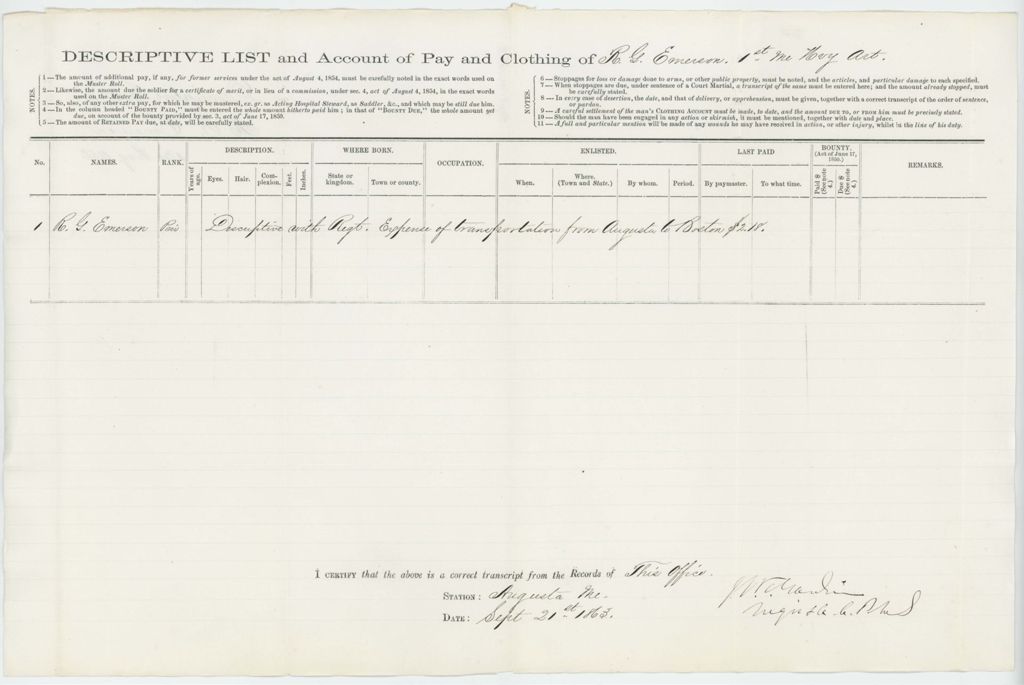 DESCRIPTIVE LIST and Account of Pay and Clothing of R. G. Emerson. 1st Me Hvy Art.
NOTES.
1—The amount of additional pay, if any, for former services under the act of August 4, 1854, must be carefully noted in the exact words used on
the Muster Roll.
2—Likewise, the amount due the soldier for a certificate of merit, or in lieu of a commission, under sec. 4, act of August 4, 1854, in the exact words
used on the Muster Roll.
3—So, also, of any other extra pay, for which he may be mustered, ex. gr. as Acting Hospital Steward, as Saddler, &c., and which may be still due him.
4—In the column headed "BOUNTY PAID," must be entered the whole amount hitherto paid him; in that of "BOUNTY DUE," the whole amount yet
due, on account of the bounty provided by sec. 3, act of June 17, 1850.
5—The amount of RETAINED PAY due, at date, will be carefully stated.
NOTES.
6—Stoppages for loss or damage done to arms, or other public property, must be noted, and the articles, and particular damage to each specified.
7—When stoppages are due, under sentence of a Court Martial, a transcript of the same must be entered here; and the amount already stopped, must
be carefully stated.
8—In every case of desertion, the date, and that of delivery, or apprehension, must be given, together with a correct transcript of the order of sentence,
or pardon.
9—A careful settlement of the man's CLOTHING ACCOUNT must be made, to date, and the amount DUE TO, or FROM him must be precisely stated.
10—Should the man have been engaged in any action or skirmish, it must be mentioned, together with date and place.
11—A full and particular mention will be made of any wounds he may have received in action, or other injury, whilst in the line of his duty.
No. NAMES. RANK. DESCRIPTION. WHERE BORN. OCCUPATION. ENLISTED. LAST PAID BOUNTY. (Act of June 17, 1850.) REMARKS.
Years of age. Eyes. Hair. Complexion. Feet. Inches. State or kingdom. Town or county. When. Where. (Town and State.) By whom. Period. By paymaster. To what time. Paid $ (See note 4.) Due $ (See note 4.)
1 R. G. Emerson Descriptive with Regt. Expense of transportation from Augusta to Boston $2.18.
I CERTIFY that the above is a correct transcript from the Records of This Office.
STATION: Augusta Me.
DATE: Sept 21st 1863.